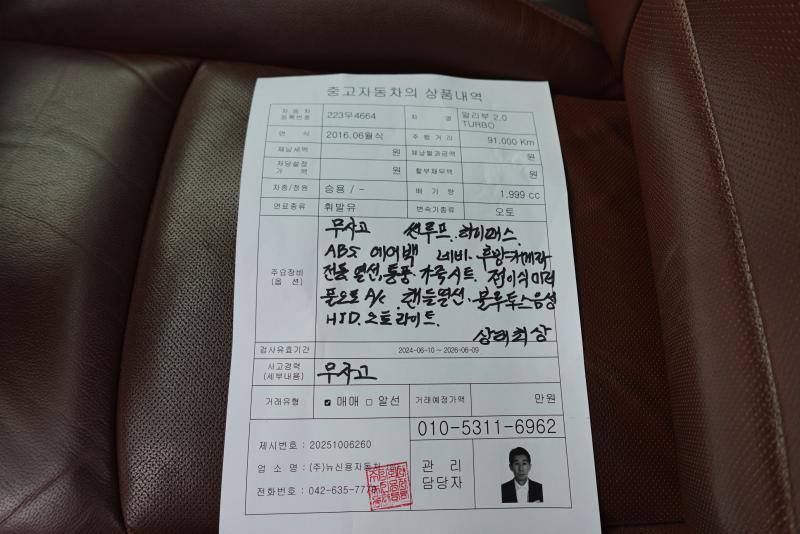 중고자동차의 상품내역
자동차등록번호 223무4664 차명 말리부 2.0 TURBO
연식 2016.06월식 주행거리 91,000 Km
체납세액 원 체납별과금액 원
저당설정가액 원 할부채무액 원
차종/정원 승용 / - 배기량 1,999 cc
연료종류 휘발유 변속기종류 오토
주요장비 (옵션)
무사고 썬루프. 하이패스.
ABS 에어백 네비. 후방카메라
전동 열선, 통풍. 가죽시트. 전이식미러
풀오토 A/c 핸들열선. 블루투스음성
HID. 오토라이트.
상태최상
검사유효기간 2024-06-10 ~ 2026-06-09
사고경력 (세부내용) 무사고
거래유형 ☑ 매매 □ 알선 거래예정가액 만원
010-5311-6962
제시번호 : 20251006260
업소명 : (주)뉴신용자동차
전화번호 : 042-635-777
관리
담당자